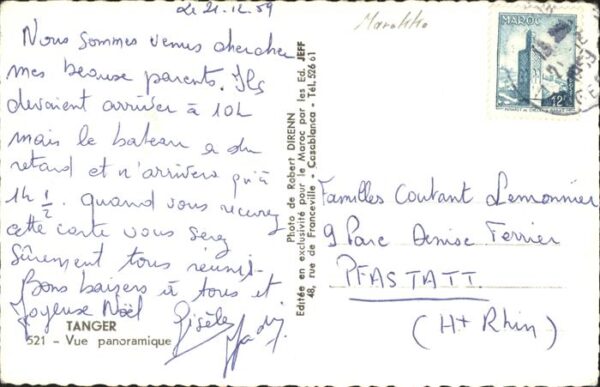 Le 21.12.59
Nous sommes venus chercher
mes beaux parents. Ils
devaient arriver à 10h
mais le bateau a du
retard et n'arrivera qu'à
1h 1/2. Quand vous recevrez
cette carte vous serez
sûrement tous réunis.
Bons baisers à tous et
Joyeuse Noël
Gisèle
TANGER
521 - Vue panoramique
Photo de Robert DIRENN
Editée en exclusivité pour le Maroc par les Ed. JEFF
48, rue de Franceville - Casablanca - Tél. 526 61
Marokko
MAROC
12F
Familles Coutant Lemonnier
9 Parc Denise Ferrier
PFASTATT
(Ht Rhin)